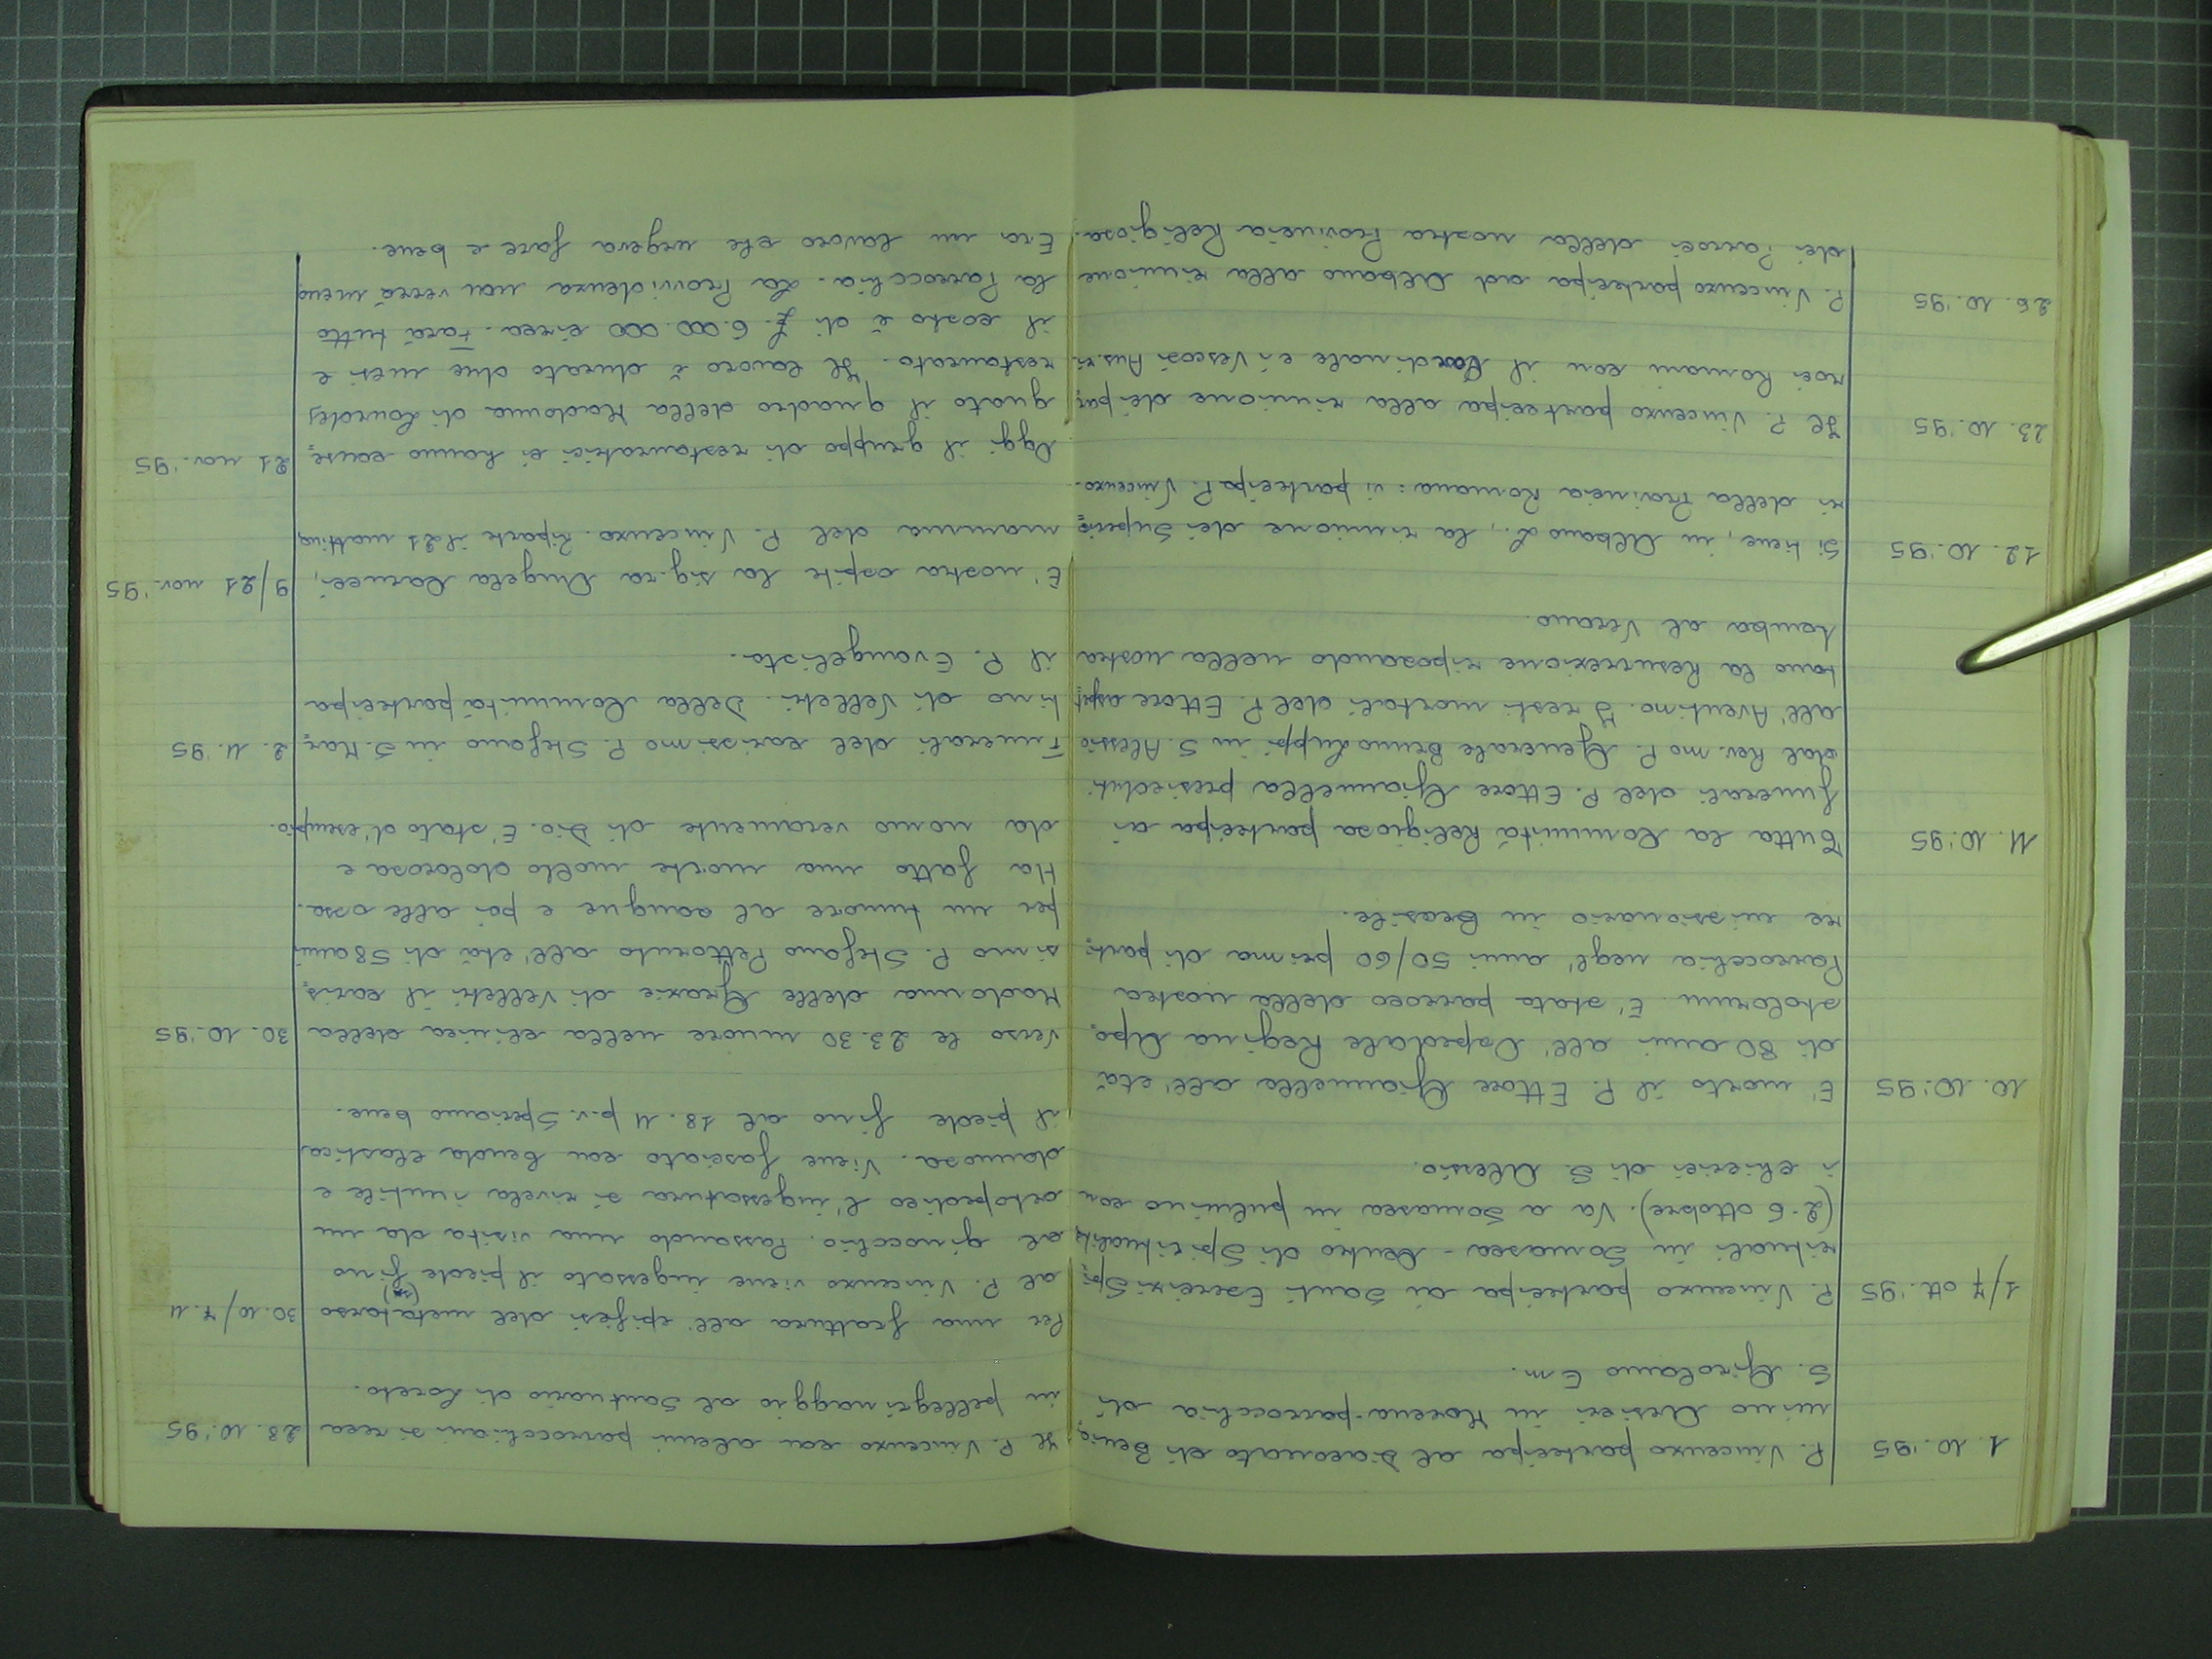 1. 10. '95 P. Vincenzo partecipa al Diaconato di Benia=
mino Aresieri in Morena - parrocchia di
S. Girolamo E m.
1/7 ott. '95 P. Vincenzo partecipa ai Santi Esercizi Spi=
rituali in Somasca - Centro di Spiritualità
(2-6 ottobre). Va a Somasca in pulmino con
i chierici di S. Alessio.
10. 10. '95 E' morto il P. Ettore Giannella all'età
di 80 anni all'Ospedale Regina Apo=
stolorum. E' stato parroco della nostra
Parrocchia negl'anni 50/60 prima di parti=
re missionario in Brasile.
11. 10. '95 Tutta la Comunità Religiosa partecipa ai
funerali del P. Ettore Giannella presieduti
dal Rev.mo P. Generale Bruno Luppi in S. Alessio
all'Aventino. I resti mortali del P. Ettore aspet=
tano la Resurrezione riposando nella nostra
tomba al Verano.
12. 10. '95 Si tiene, in Albano L., la riunione dei Superio=
ri della Provincia Romana: vi partecipa P. Vincenzo.
23. 10. '95 Il P. Vincenzo partecipa alla riunione dei par=
roci Romani con il Cardinale e i Vescovi Aus.ri
26. 10. '95 P. Vincenzo partecipa ad Albano alla riunione
dei Parroci della nostra Provincia Religiosa.
Il P. Vincenzo con alcuni parrocchiani si reca 28. 10. '95
in pellegrinaggio al Santuario di Loreto.
Per una frattura all'epifisi del metatarso 30. 10/7. 11
al P. Vincenzo viene ingessato il piede fino
al ginocchio. Passando una visita da un
ortopedico l'ingessatura si rivela inutile e
dannosa. Viene fasciato con benda elastica
il piede fino al 18. 11 p.v. Speriamo bene.
Verso le 23.30 muore nella clinica della 30. 10. '95
Madonna delle Grazie di Velletri il caris=
simo P. Stefano Pettoruto all'età di 58 anni
per un tumore al sangue e poi alle ossa.
Ha fatto una morte molto dolorosa e
da uomo veramente di Dio. E' stato d'esempio.
Funerali del carissimo P. Stefano in S. Mar= 2. 11. '95
tino di Velletri. Della Comunità partecipa
il P. Evangelista.
E' nostra ospite la sig.ra Angela Carucci, 9/21 nov. '95
mamma del P. Vincenzo. Riparte il 21 mattina
Oggi il gruppo di restauratrici ci hanno conse= 21 nov. '95
gnato il quadro della Madonna di Lourdes
restaurato. Il lavoro è durato due mesi e
il costo è di £. 6.000.000 circa. Farà tutto
la Parrocchia. La Provvidenza non verrà meno.
Era un lavoro che urgeva fare e bene.